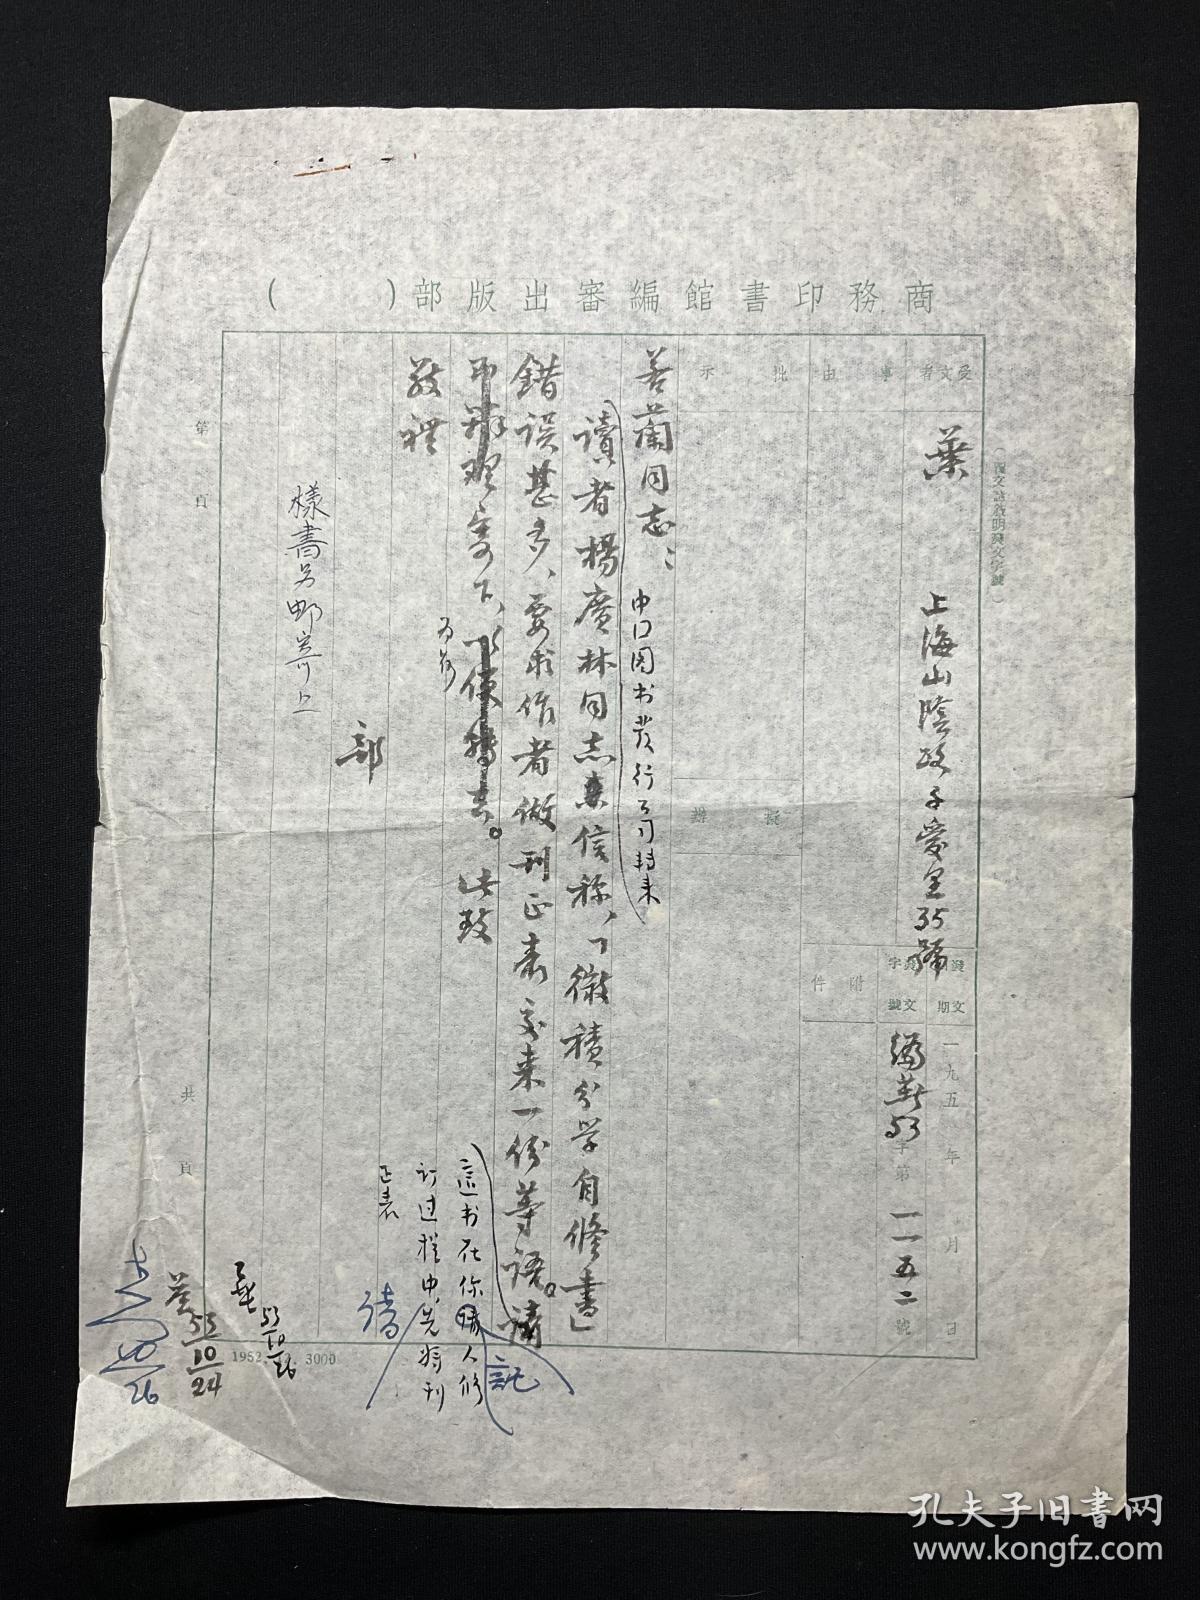 商務印書館編審出版部（　　）
（復文請敘明發文字號）
受文者
葉
上海山陰路千愛里35號
事由
批示
擬辦
附件
發文日期
一九五　年　月　日
發文字號
編蓁53字第一一五二號
善蘭同志：
中囗图书发行公司转来
讀者楊廣林同志來信称，「微積分学自修書」
錯误甚多，要求作者做刊正表，寄来一份等语。请
這书在你嘱託人修
订过程中，先将刊
正表
请
即辦理寄下，以便轉去。此致
为荷
敬禮
部
樣書另邮寄上
第　頁
共　頁
53/10/26
53/10/24
10/26
1952. 3000
孔夫子旧书网
www.kongfz.com